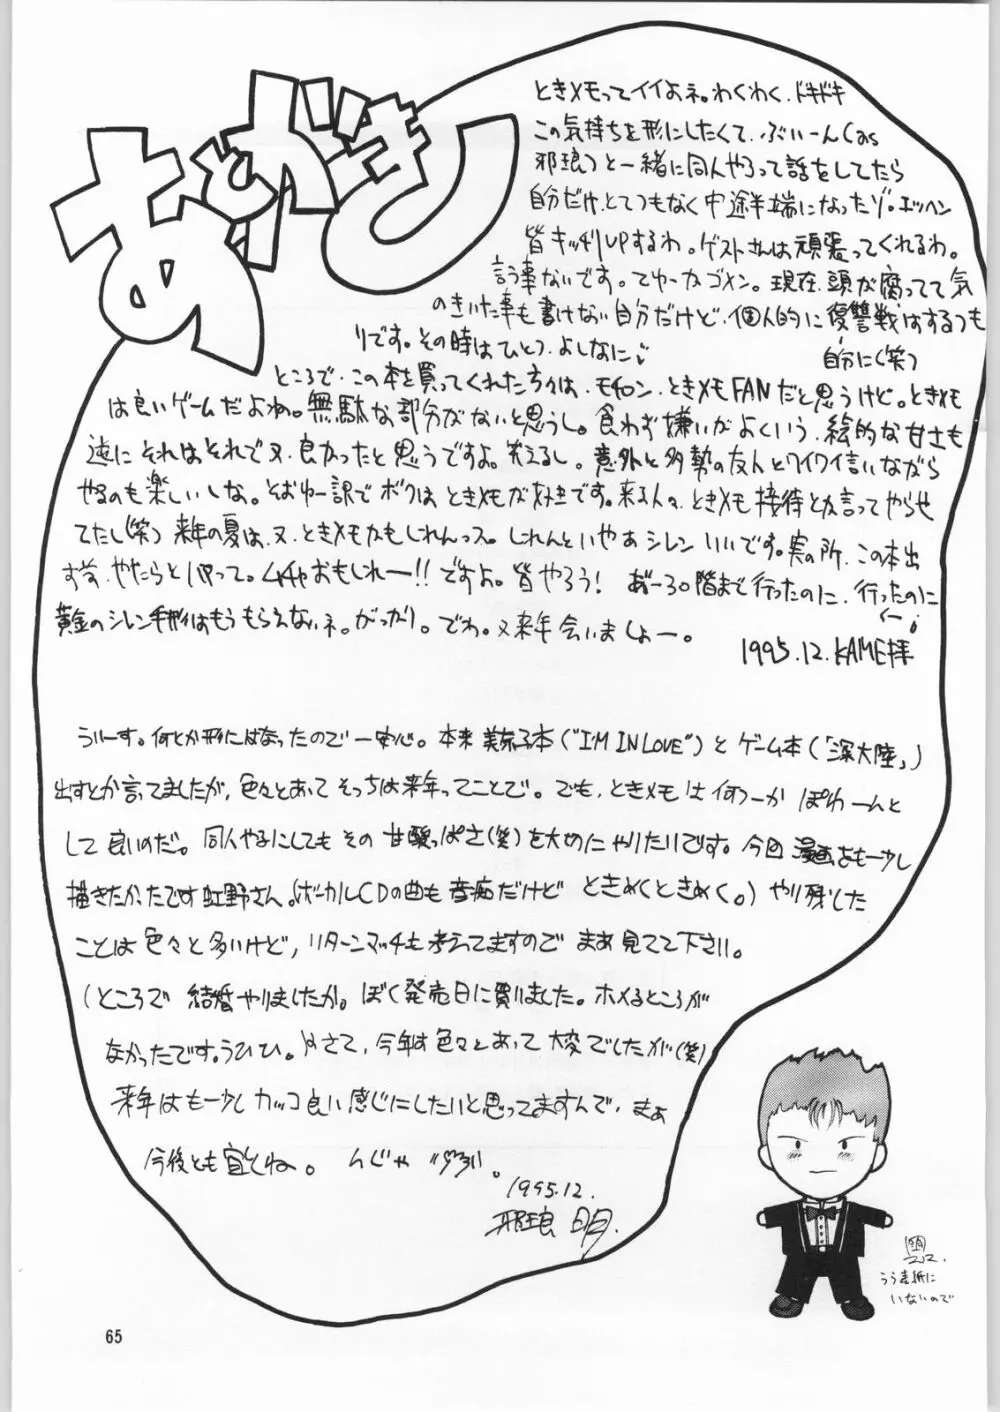 あとがき
ときメモってイイよネ。わくわく、ドキドキ
この気持ちを形にしたくて、ぶいーん(as
邪琅)と一緒に同人やろって話をしてたら
自分だけ、とてつもなく中途半端になったゾ。エッヘン
皆キッチリUPするわ。ゲストさんは頑張ってくれるわ。
言う事ないです。てゆーかゴメン。現在、頭が腐ってて気
のきいた事も書けない自分だけど、個人的に復讐戦はするつも
自分に(笑)
りです。その時はひとつ、よしなに
ところで、この本を買ってくれた方々は、モチロン、ときメモFANだと思うけど。ときメモ
は良いゲームだよね。無駄な部分がないと思うし。食わず嫌いがよくいう、絵的な甘さも
逆にそれはそれで又、良かったと思うですよ。笑えるし。意外と多勢の友人とワイワイ言いながら
やるのも楽しいしな。そおゆー訳でボクはときメモが好きです。来る人々、ときメモ接待とか言ってやらせ
てたし(笑) 来年の夏は、又、ときメモかもしれんっス。しれんといやあシレンいいです。実の所、この本出
す前、やたらとハマって。ムチャおもしれー!!ですよ。皆やろう! あ゛ーっ30階まで行ったのに、行ったのに
黄金のシレン手形はもうもらえないネ。がっかり。でわ。又来年会いましょー。
1995.12.KAME拝
ういーす。何とか形にはなったので一安心。本来 美奈子本("I'M IN LOVE")と ゲーム本(「深大陸」)
出すとか言ってましたが、色々とあって そっちは来年ってことで。でも、ときメモは 何つーか ぽわーんと
して良いのだ。同人やるにしても その 甘酸っぱさ(笑)を大切に やりたいです。今回 漫画をもー少し
描きたかったです虹野さん。(ボーカルCDの曲も 音痴だけど ときめくときめく。) やり残した
ことは色々と多いけど、リターンマッチも考えてますので まあ見てて下さい。
(ところで 結婚やりましたか。ぼく発売日に買いました。ホメるところが
なかったです。うひひ。)さて、今年は色々とあって 大変でしたが(笑)
来年はもー少しカッコ良い感じにしたいと思ってますんで、まぁ
今後とも宜しくね。 んじゃ
1995.12.
邪琅 明.
うら表紙に
いないので
65